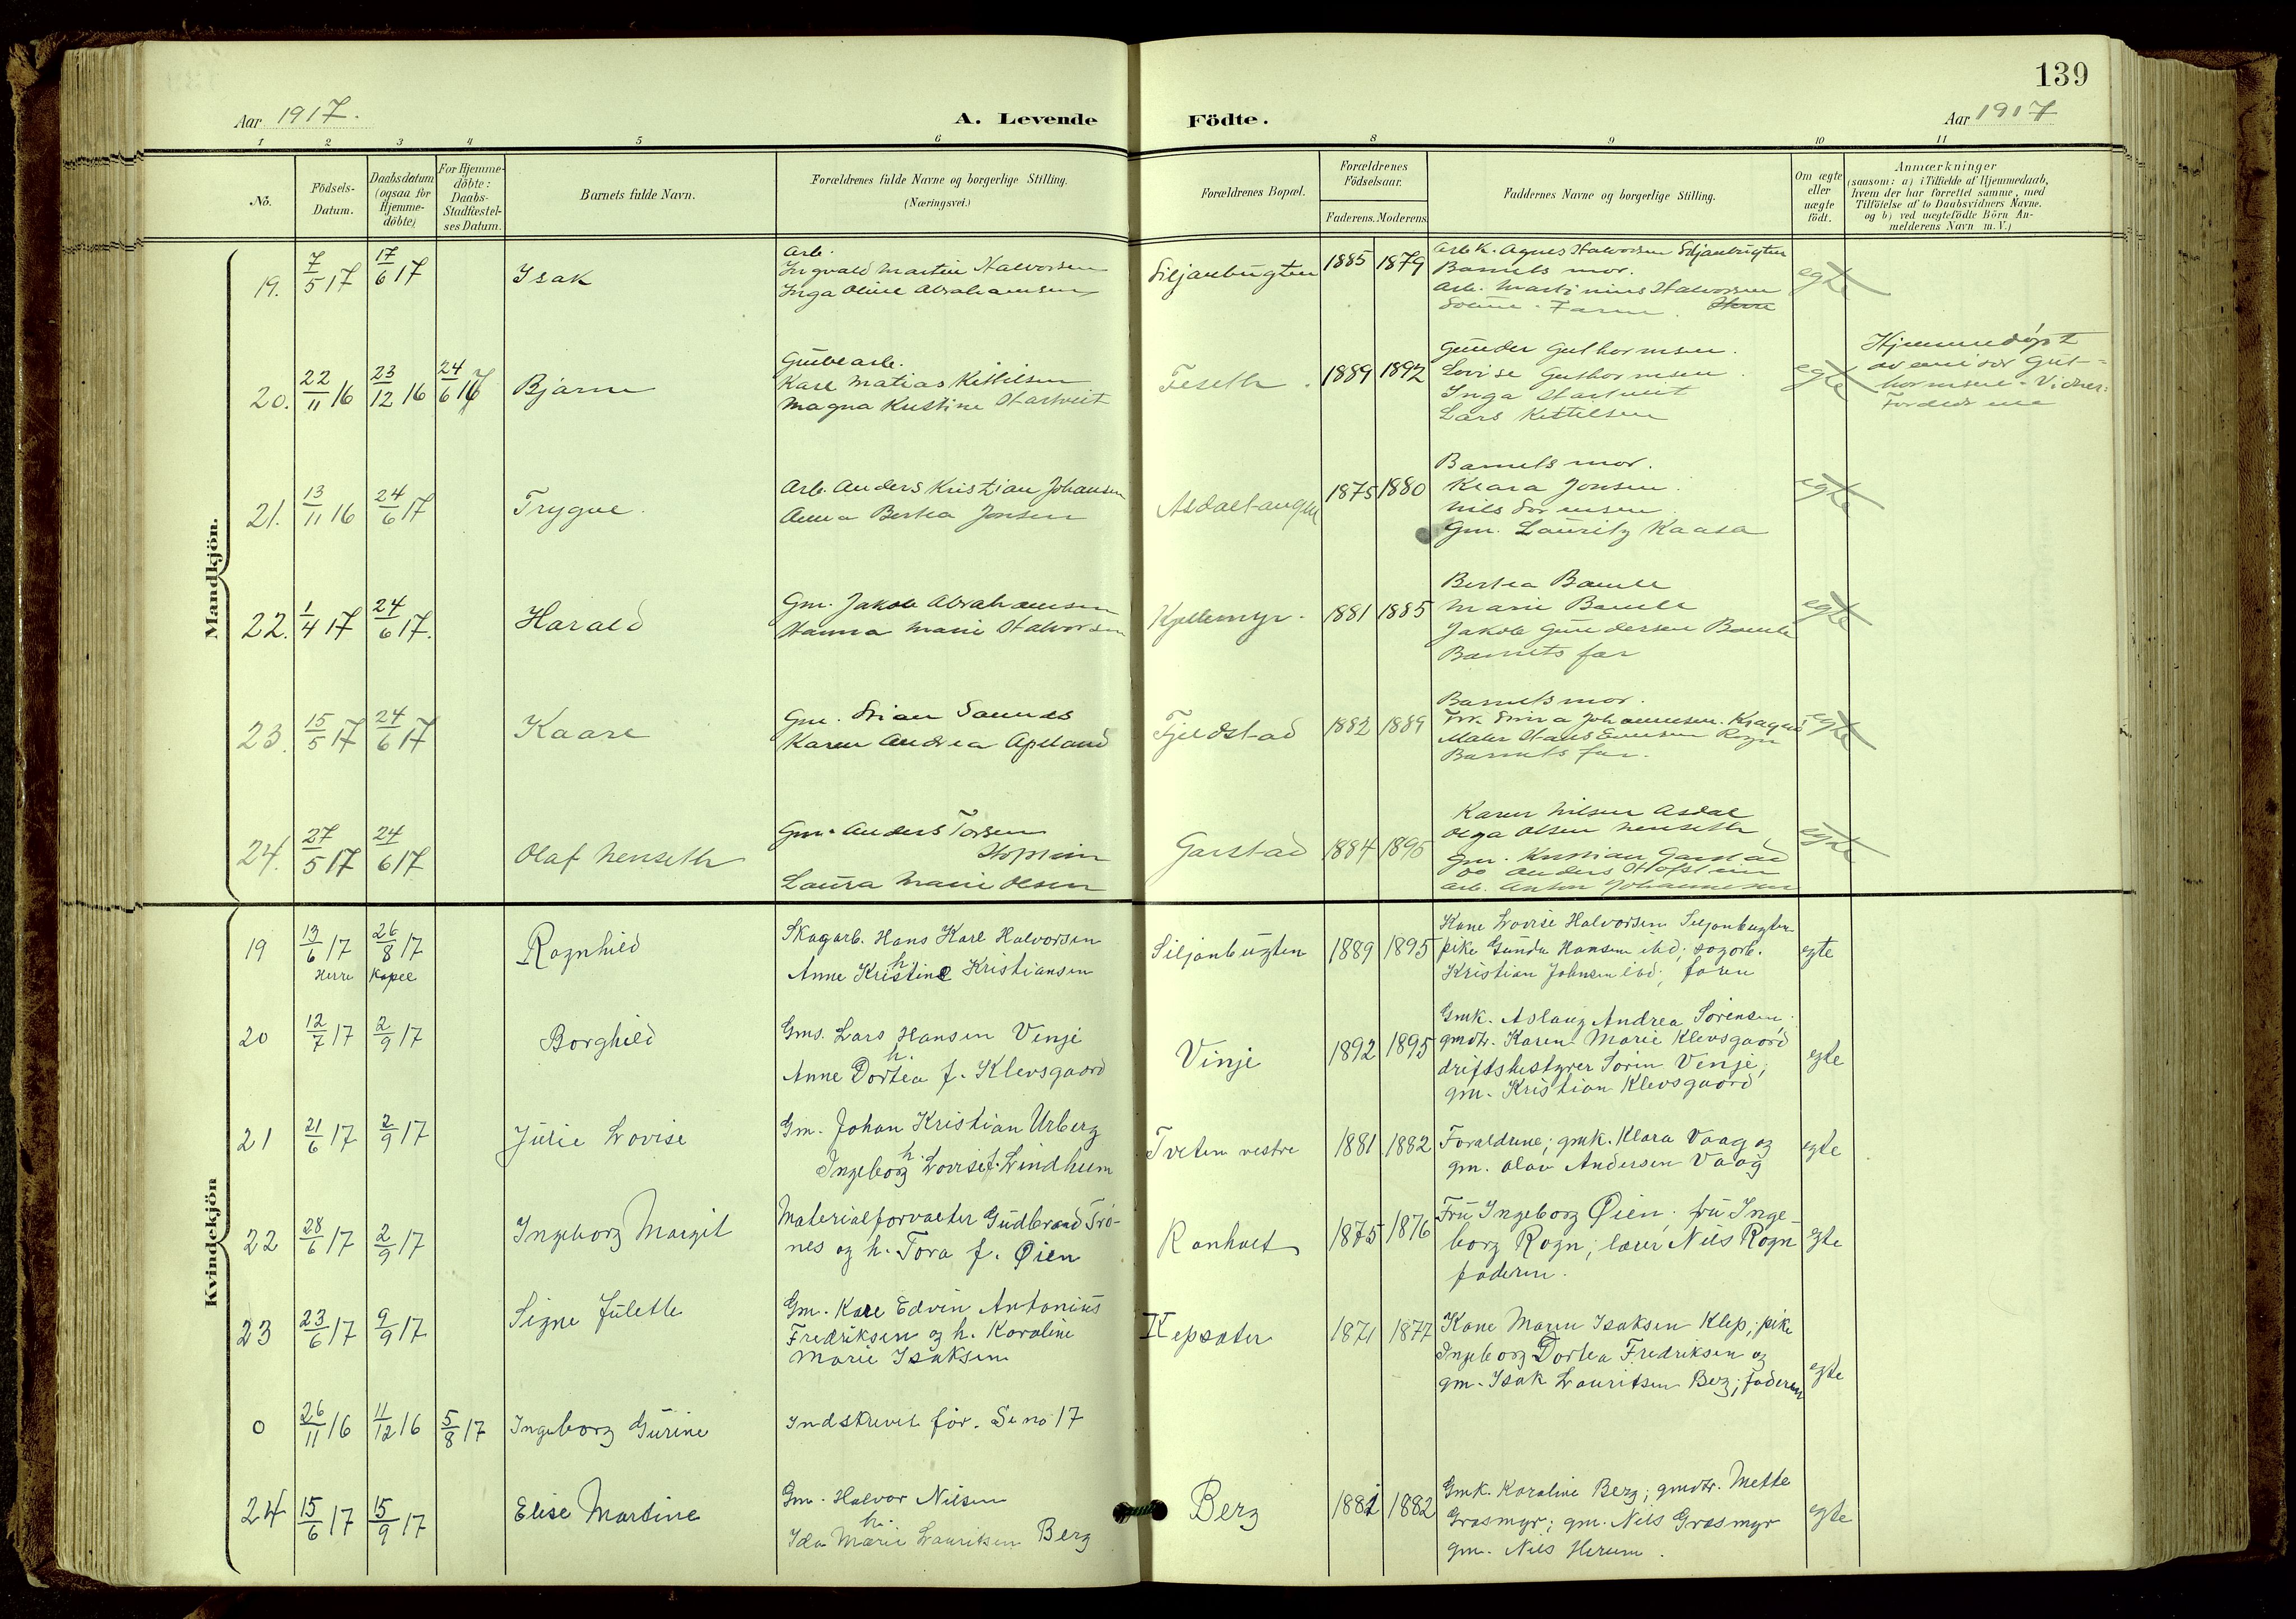 139
Aar 1917.
A. Levende Födte.
Aar 1917
1 2 3 4 5 6 8 9 10 11
No. Födsels-Datum. Daabsdatum (ogsaa for Hjemme-döbte) For Hjemme-döbte: Daabs-Stadfæstel-ses Datum. Barnets fulde Navn. Forældrenes fulde Navne og borgerlige Stilling. (Næringsvei.) Forældrenes Bopæl. Forældrenes Födselsaar. Faderens. Moderens. Faddernes Navne og borgerlige Stilling. Om ægte eller uægte födt. Anmærkninger
(saasom: a) i Tilfælde af Hjemmedaab,
hvem der har forrettet samme, med
Tilföielse af to Daabsvidners Navne.
og b) ved uægtefödte Börn An-
melderens Navn m. V.)
Mandkjön.
19. 7/5 17 17/6 17 Isak
Arb.
Ingvald Martin Halvorsen
Inga Oline Abrahamsen
Siljanbugten 1885 1879
Arb.k. Agnes Halvorsen Siljanbugten
Barnets mor.
Arb. Martinius Halvorsen
egte
20. 22/11 16 23/12 16 24/6 17 Bjarne
Grubearb.
Karl Matias Kittilsen
Magna Kristine Hartveit
Feseth. 1889 1892
Gunder Guthormsen.
Lovise Guthormsen.
Inga Hartveit
Lars Kittilsen
egte
Hjemmedøpt
av Gut-
hormsen - Vidner:
Forældrene
21. 13/11 16 24/6 17 Trygve.
Arb. Anders Kristian Johansen
Anna Bertea Jensen
Asdaltangen 1875 1880
Barnets mor.
Klara Jonsen.
Nils Sørensen.
Gm. Lauritz Kaasa
egte
22. 1/4 17 24/6 17. Harald
Gm. Jakob Abrahamsen
Hanna Marie Halvorsen
Kjellemyr. 1881 1885
Bertea Bamle
Marie Bamle
Jakob Gundersen Bamle
Barnets far
egte
23. 15/5 17 24/6 17 Kaare
Gm. Stian Sannes
Karen Andrea Apeland
Fjeldstad 1882 1889
Barnets mor.
Frk. Johannesen. Kragerø
Maler Hans Rogn
Barnets far.
egte
24. 27/5 17 24/6 17 Olaf Nenseth
Gm. Anders Torsen
Hofstein
Laura Marie Olsen
Garstad 1884 1895
Karen Nilsen Asdal
Olga Olsen Nenseth
Gm. Kristian Garstad
Anders Hofstein
Arb. Anton Johannesen
egte
Kvindekjön
19 13/6 17 26/8 17 Ragnhild
Herre Kapel
Skogarb. Hans Karl Halvorsen
h.
Anne Kristine Kristiansen
Siljanbugten 1889 1895
Kone Lovise Halvorsen Siljanbugten
pike Gunda Hansen ibd; sagarb.
Kristian Johnsen ibd; faren
egte
20 12/7 17 2/9 17 Borghild
Gms. Lars Hansen Vinje
h.
Anne Dortea f. Klevsgaard
Vinje 1892 1895
Gmk. Aslaug Andrea Sørensen;
gmdtr. Karen Marie Klevsgaard
driftsbestyrer Sørin Vinje;
gm. Kristian Klevsgaard
egte
21 21/6 17 2/9 17 Julie Lovise
Gm. Johan Kristian Urberg
h.
Ingeborg Lovise f. Lindheim
Tveten vestre 1881 1882
Forældrene; gmk. Klara Vaag og
gm. Olav Andersen Vaag
egte
22 28/6 17 2/9 17 Ingeborg Margit
Materialforvalter Gudbrand Trø-
nes og h. Tora f. Øien
Rønholt 1875 1876
Fru Ingeborg Øien; fru Inge-
borg Rogn; lærer Nils Rogn
faderen.
egte
23 23/6 17 9/9 17 Signe Juleth
Gm. Kare Edvin Antonius
Fredriksen og h. Karoline
Marie Isaksen
Kepsæter 1871 1877
Kone Maren Isaksen Klep; pike
Ingeborg Dortea Fredriksen og
gm. Isak Lauritsen Berg; faderen
egte
0 26/11 16 11/12 16 5/8 17 Ingeborg Gurine
Indskrevet før. Se no 17
24 15/6 17 15/9 17 Elise Martine
Gm. Halvor Nilsen
h.
Ida Marie Lauritsen Berg
Berg 1881 1882
Gmk. Karoline Berg; gmdtr. Mette
Grasmyr; gm. Nils Grasmyr
gm. Nils Herum.
egte